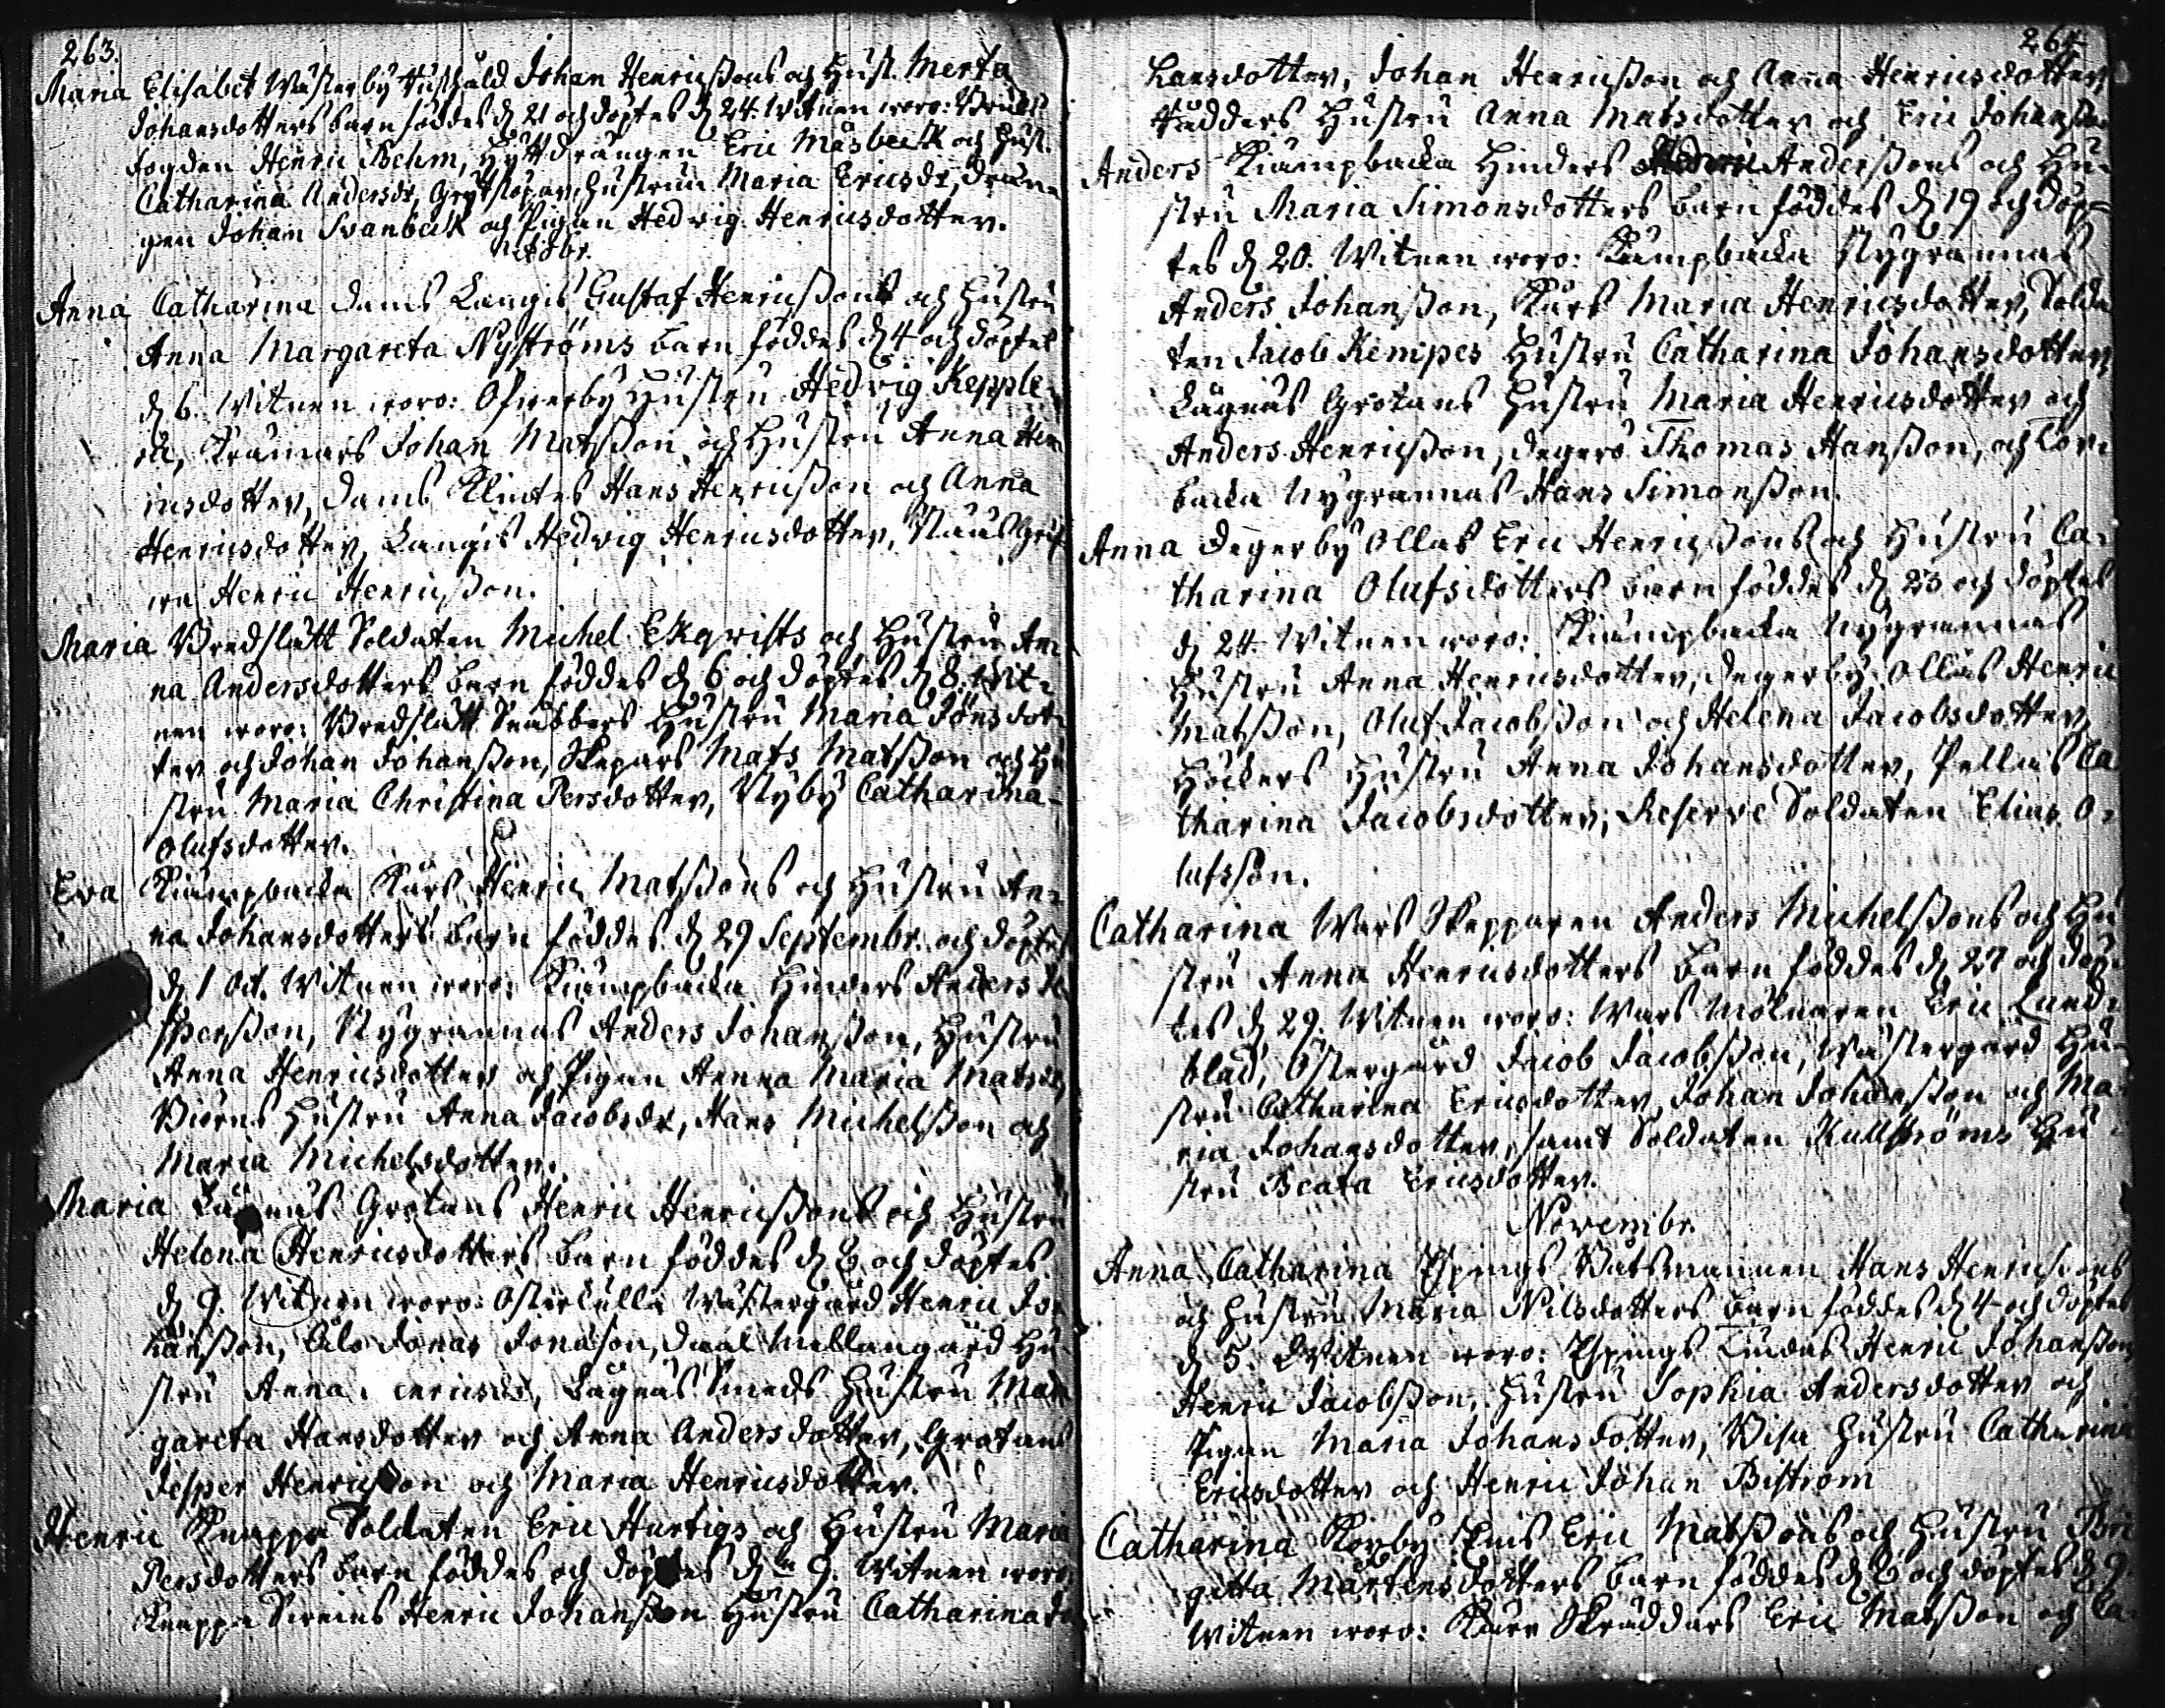 263.
Maria Elisabet Wästerby Inhyses Johan Henricßons och Hust. Merta
Johansdotters barn föddes d 21 och döptes d 24. Witnen woro: Bruks
fogden Henric Behm, Hyttdrängen Eric Måsbeck och Hust.
Catharina Andersdr, Grytstöpar hustrun Maria Ericsdr, drän=
gen Johan Svanbeck och Pigan Hedvig Henricsdotter.
Octobr.
Anna Catharina Dams Langis Gustaf Henricßons och Hustru
Anna Margareta Nyströms barn föddes d 4 och döptes
d 6. Witnen woro: Öfwerby Hustru Hedvig Kepple=
ra, Kramars Johan Matsßon och Hustru Anna Hen
ricsdotter, Dams Klintes Hans Henricßon och Anna
Henricsdotter, Langis Hedvig Henricsdotter,
Henric Henricßon.
Maria Bredslätt Soldaten Michel Ekqvists och Hustru An=
na Andersdotters barn föddes d 6 och döptes d 8. Wit=
nen woro: Bredslätt Snabbers Hustru Maria Jönsdot=
ter och Johan Johanßon, Skepars Mats Matsßon och Hu
stru Maria Christina Persdotter, Nyby Catharina
Olufsdotter.
Eva Kiämpbacka Kurs Henric Matsßons och Hustru An=
na Johansdotters barn föddes d 29 Septembr. och döptes
d 1 Oct. Witnen woro: Kiämpbacka Hinders Anders
Nygrannas Anders Johanßon, Hustru
Anna Henricsdotter och Pigan Anna Maria Matsdr,
Biörns Hustru Anna Jacobsdr, Hans Michelßon och
Maria Michelsdotter.
Maria Lågnäs Grotans Henric Henricßons och Hustru
Helena Henricsdotters barn föddes d 8 och döptes
d 9. Witnen woro: Österkulla Wästergård Henric Jo=
hanßon, Jonas Jonasson, Daal Mellangård Hu
stru Anna Lågnäs Smeds Hustru Mar
gareta Hansdotter och Anna Andersdotter, Grotans
Jesper Henricßon och Maria Henricsdotter.
Henric Knappa Soldaten Eric Hurtigs och Hustru Maria
Persdotters barn föddes och döptes d 9. Witnen woro
Knappa Henric Johanßon Hustru Catharina
264
hansdotter, Johan Henricßon och Anna Henricsdotter
Hustru Anna Matsdotter och Eric Johanßon
Anders Kiämpbacka Hinders Andersßons och Hu=
stru Maria Simonsdotters barn föddes d 19 och döp=
tes d 20. Witnen woro: Kiämpbacka Nygrannas
Anders Johanßon, Kurs Maria Henricsdotter, Solda
ten Jacob Kempes Hustru Catharina Johansdotter,
Lågnäs Grotans Hustru Maria Henricsdotter och
Anders Henricßon, Degers Thomas Hanßon, och
backa Nygrannas Hans Simonßon.
Anna Degerby Ollas Eric Henricßons och Hustru Ca=
tharina Olufsdotters barn föddes d 23 och döptes
d 24. Witnen woro: Kiämpbacka Nygrannas
Hustru Anna Henricsdotter, Degerby Ollas Henric
Matsßon, Oluf Jacobßon och Helena Jacobsdotter,
Höckers Hustru Anna Johansdotter, Pellas Ca
tharina Jacobsdotter, Reserve Soldaten Elias O=
lufsson.
Catharina Wars Skepparen Anders Michelßons och Hu
stru Anna Henricsdotters barn föddes d 27 och döp=
tes d 29. Witnen woro: Wars Mölnaren Eric Lund=
blad, Östergård Jacob Jacobßon, Wästergård Hu=
stru Catharina Ericsdotter, Johan Johanßon och Ma=
ria Johansdotter, samt Soldaten Kullströms Hu=
stru Beata Ericsdotter.
Novembr.
Anna Catharina Espings Båtsmannen Hans Henricßons
och Hustru Maria Nilsdotters barn föddes d 4 och döptes
d 5. Witnen woro: Espings Lindas Henric Johanßon,
Henric Jacobßon, Hustru Sophia Andersdotter och
Pigan Maria Johansdotter, Bisa Hustru Catharina
Ericsdotter och Henric Johan Biström
Catharina Korsby Eric Matsßons och Hustru Bri
gitta Mårtensdotters barn föddes d 8 och döptes d 9.
Witnen woro: Skräddars Eric Matsßon och Ca=